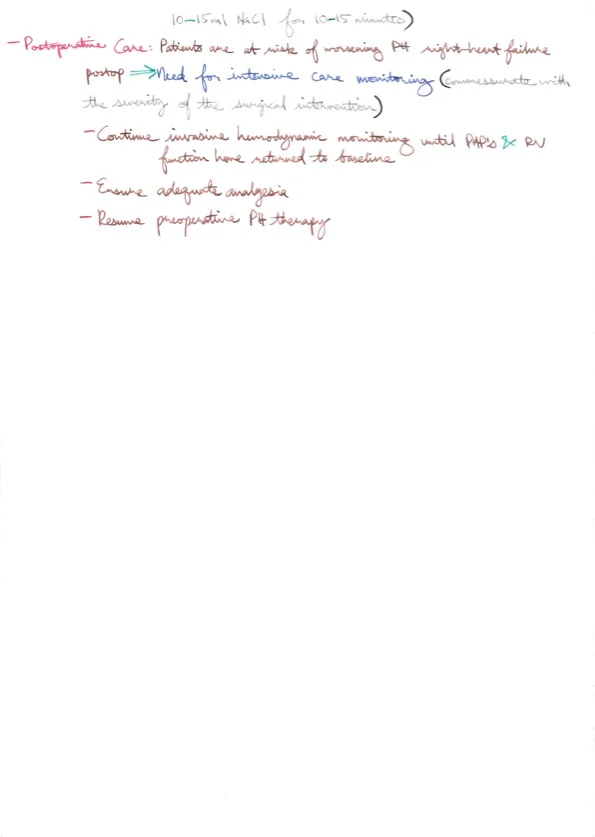 10-15ml NaCl for 10-15 minutes)
- Postoperative Care: Patients are at risk of worsening PH right-heart failure
postop ⇒ Need for intensive care monitoring (commessurate with
the severity of the surgical intervention)
- Continue invasive hemodynamic monitoring until PAP's & RV
function have returned to baseline
- Ensure adequate analgesia
- Resume preoperative PH therapy